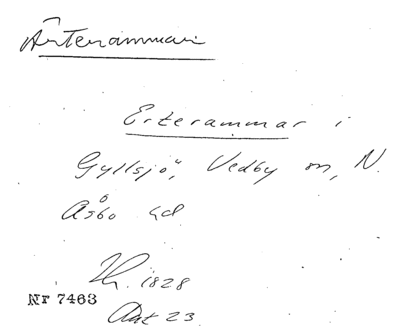 Ärterammar
Erterammar i
Gyllsjö, Vedby sn, N.
Åsbo hd
1828
Nr 7463
Akt 23